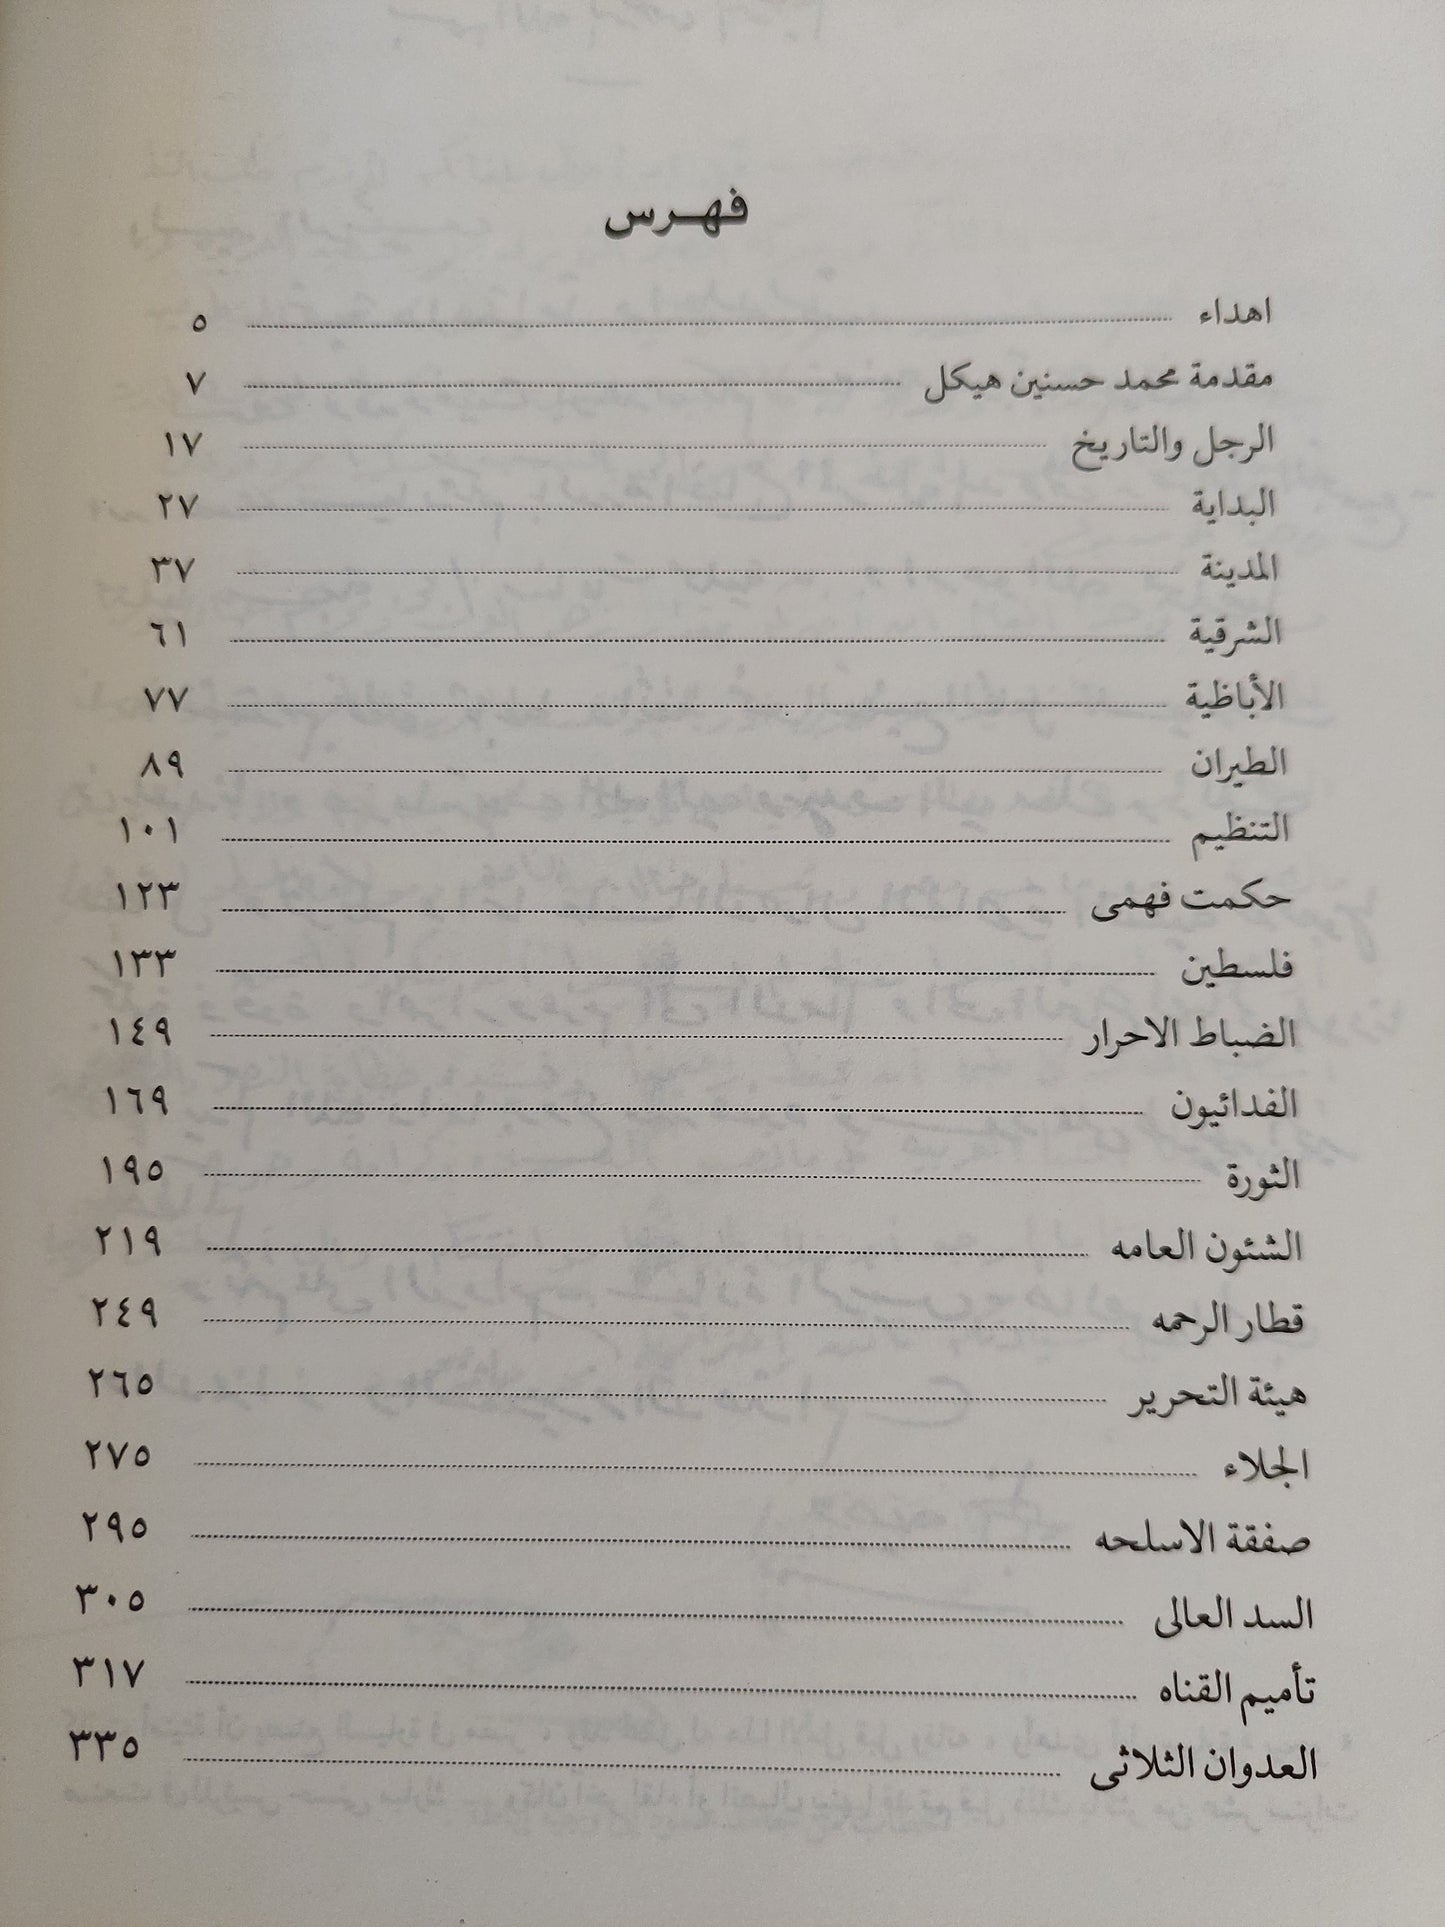 فهرس
اهداء ٥
مقدمة محمد حسنين هيكل ٧
الرجل والتاريخ ١٧
البداية ٢٧
المدينة ٣٧
الشرقية ٦١
الأباظية ٧٧
الطيران ٨٩
التنظيم ١٠١
حكمت فهمى ١٢٣
فلسطين ١٣٣
الضباط الاحرار ١٤٩
الفدائيون ١٦٩
الثورة ١٩٥
الشئون العامه ٢١٩
قطار الرحمه ٢٤٩
هيئة التحرير ٢٦٥
الجلاء ٢٧٥
صفقة الاسلحه ٢٩٥
السد العالى ٣٠٥
تأميم القناه ٣١٧
العدوان الثلاثى ٣٣٥